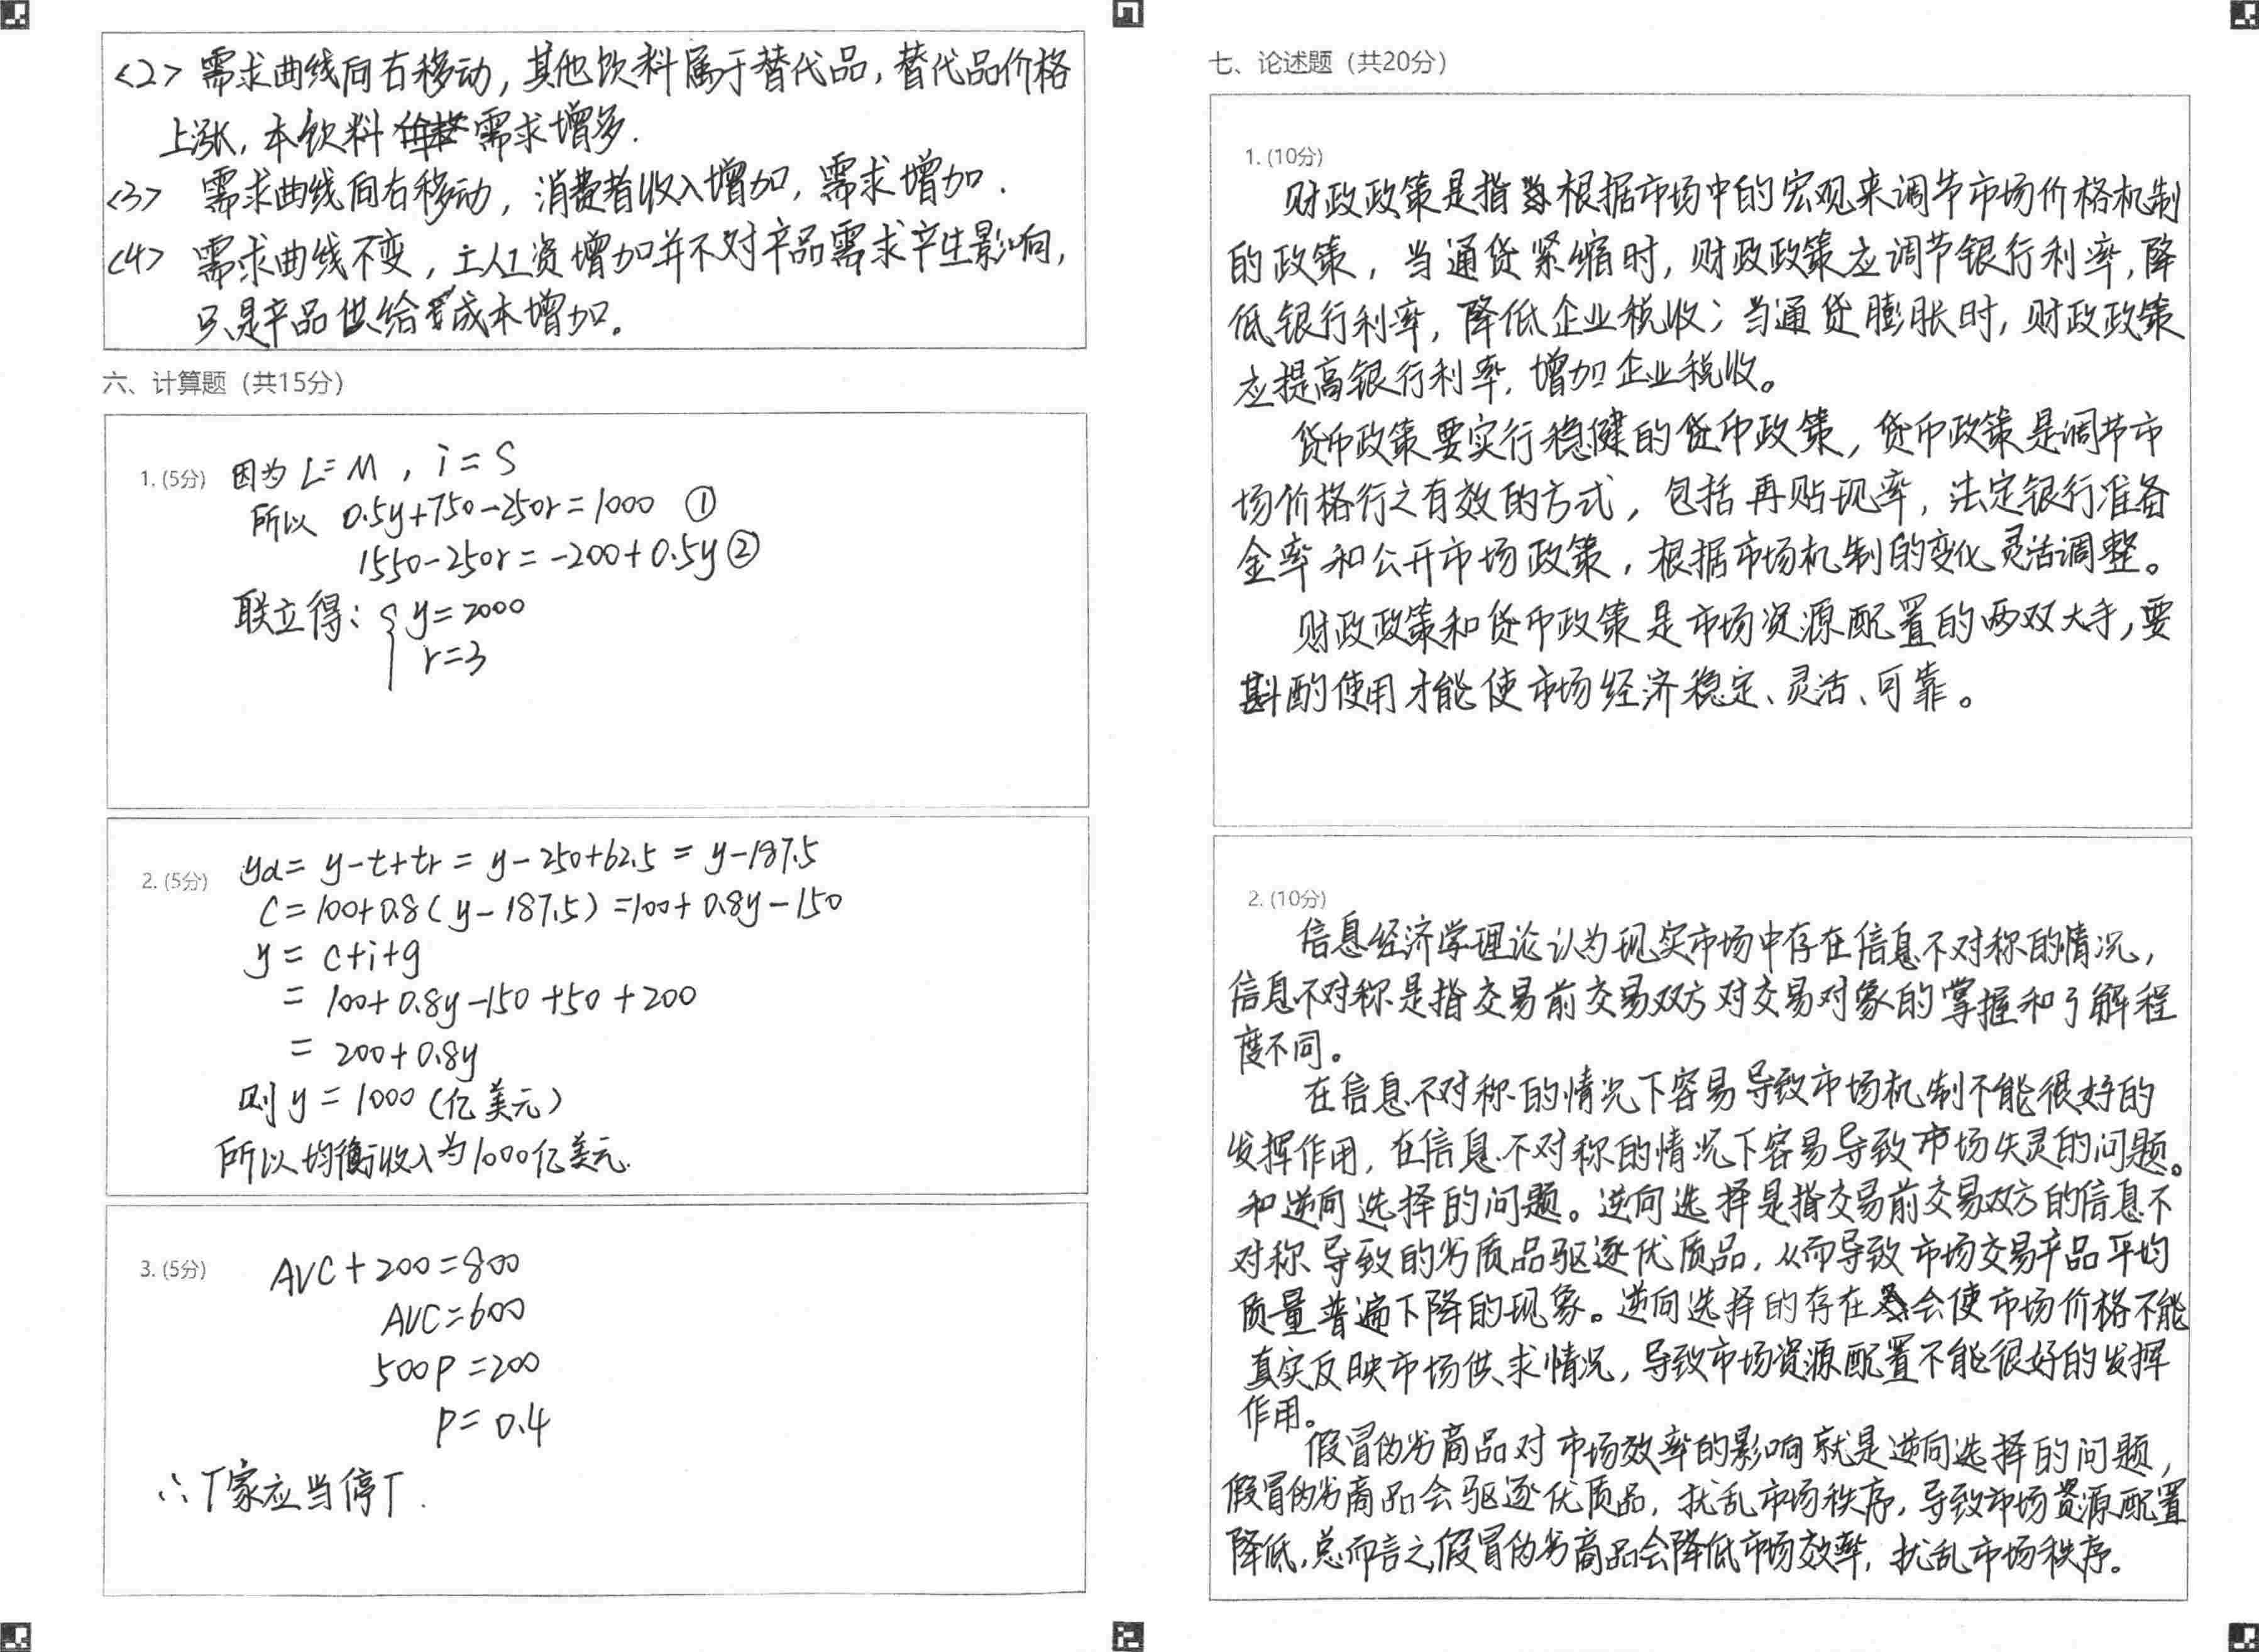 <2> 需求曲线向右移动，其他饮料属于替代品，替代品价格
上涨，本饮料需求增多.
<3> 需求曲线向右移动，消费者收入增加，需求增加.
<4> 需求曲线不变，工人工资增加并不对产品需求产生影响，
只是产品供给成本增加。
六、计算题（共15分）
1.(5分) 因为 L=M , i=S
所以 0.5y+750-250r=1000 ①
1550-250r=-200+0.5y ②
联立得：{ y=2000
r=3
2.(5分) yd= y-t+tr = y-250+62.5 = y-187.5
C=100+0.8(y-187.5)=100+0.8y-150
y= c+i+g
= 100+0.8y-150+50+200
= 200+0.8y
则 y=1000（亿美元）
所以均衡收入为1000亿美元.
3.(5分) AVC+200=800
AVC=600
500P=200
P=0.4
∴厂家应当停厂.
七、论述题（共20分）
1.(10分)
财政政策是指根据市场中的宏观来调节市场价格机制
的政策，当通货紧缩时，财政政策应调节银行利率，降
低银行利率，降低企业税收；当通货膨胀时，财政政策
应提高银行利率，增加企业税收。
货币政策要实行稳健的货币政策，货币政策是调节市
场价格行之有效的方式，包括再贴现率，法定银行准备
金率和公开市场政策，根据市场机制的变化灵活调整。
财政政策和货币政策是市场资源配置的两双大手，要
斟酌使用才能使市场经济稳定、灵活、可靠。
2.(10分)
信息经济学理论认为现实市场中存在信息不对称的情况，
信息不对称是指交易前交易双方对交易对象的掌握和了解程
度不同。
在信息不对称的情况下容易导致市场机制不能很好的
发挥作用，在信息不对称的情况下容易导致市场失灵的问题。
和逆向选择的问题。逆向选择是指交易前交易双方的信息不
对称导致的劣质品驱逐优质品，从而导致市场交易产品平均
质量普遍下降的现象。逆向选择的存在会使市场价格不能
真实反映市场供求情况，导致市场资源配置不能很好的发挥
作用。
假冒伪劣商品对市场效率的影响就是逆向选择的问题，
假冒伪劣商品会驱逐优质品，扰乱市场秩序，导致市场资源配置
降低，总而言之，假冒伪劣商品会降低市场效率，扰乱市场秩序。